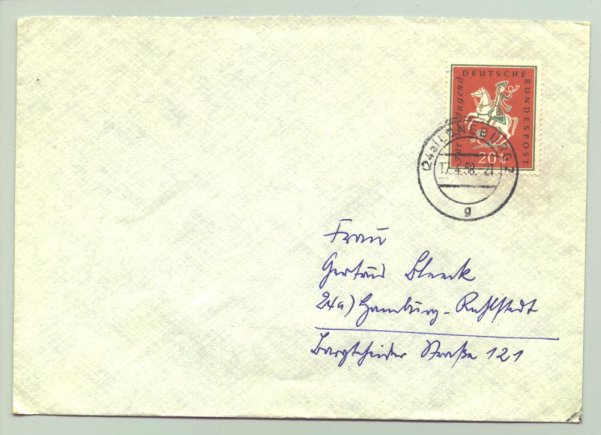 DEUTSCHE BUNDESPOST
Jugend
20
(24a) LÜNEBURG 2
17.4.58.-21
g
Frau
Gertrud Bleeck
24a) Hamburg-Rahlstedt
Bargteheider Straße 121